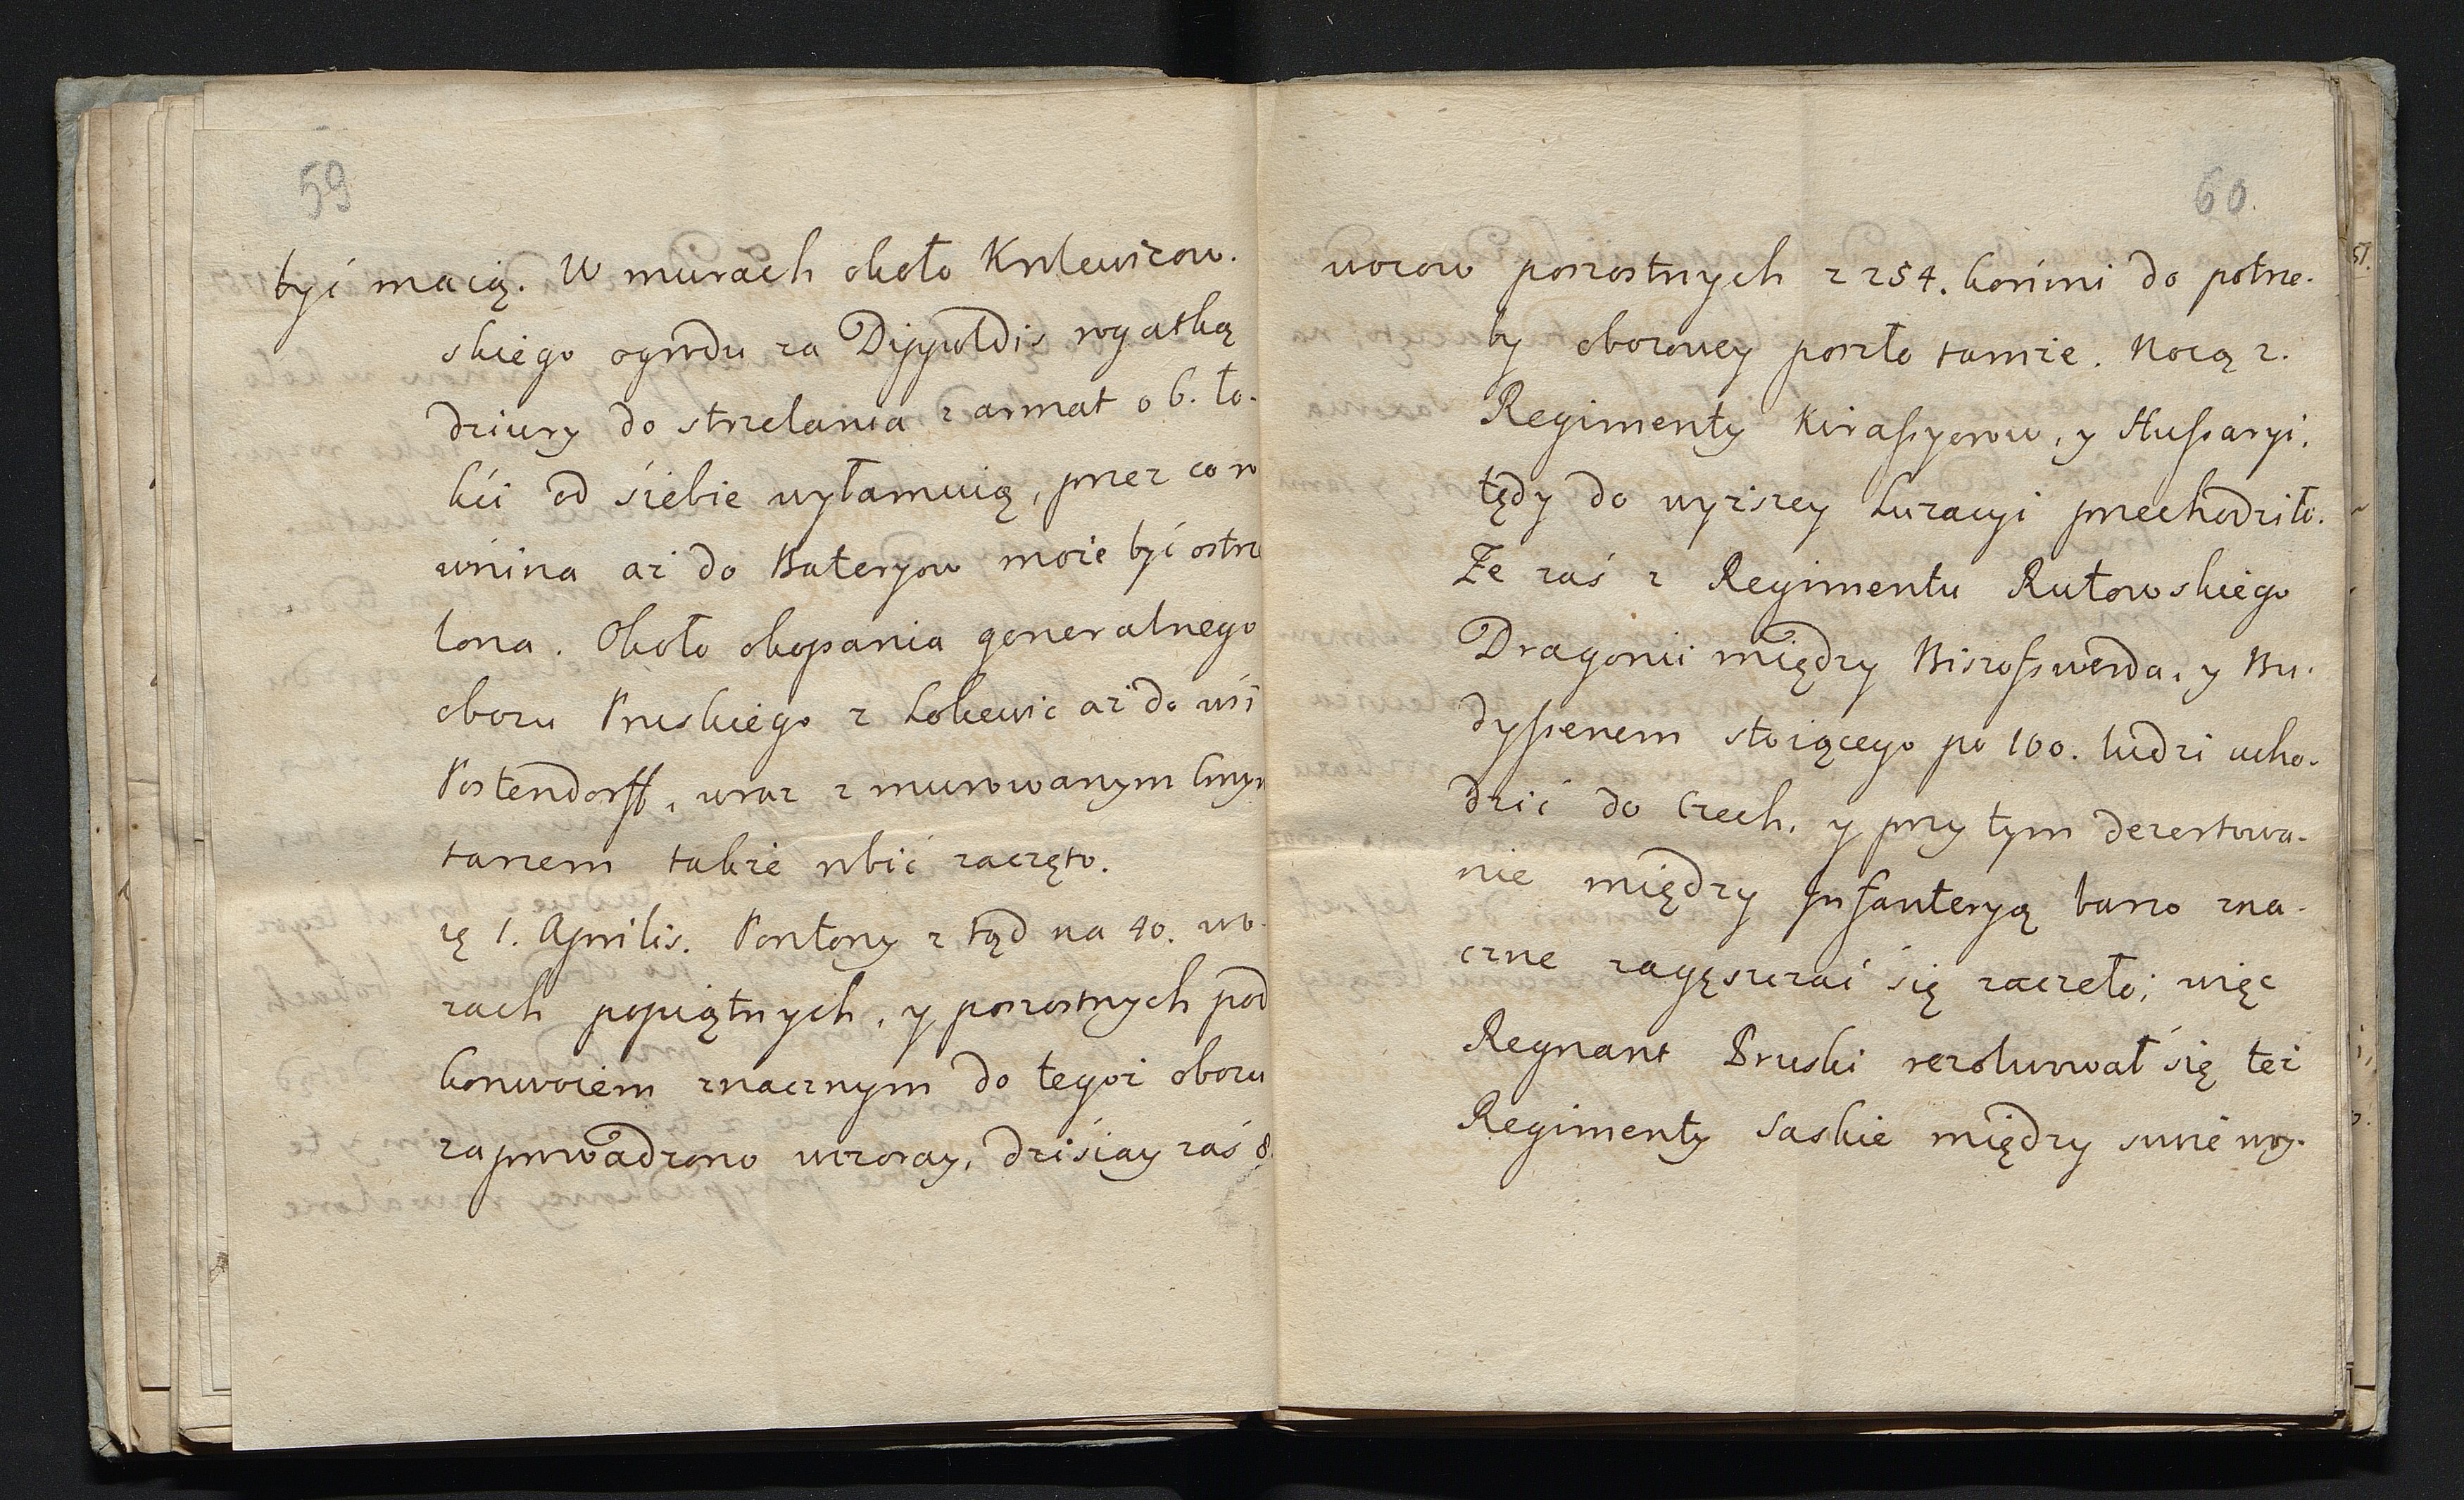 59
być maią. W murach około Krolewicow.
skiego ogrodu za Dippoldis rogatką
dziury do strzelania z armat o 6. ło.
kći od śiebie wyłamuią, przez co ro
wnina aż do Bateryow może być ostrze
lona. Około okopania generalnego
obozu Pruskiego z Lokewic aż do wśi
Postendorff, wraz z murowanym
sancem także robić zaczęto.
ię 1. Aprilis. Pontony z tąd na 40. wo.
zach popiątnych, y poszostnych pod
konwoiem znacznym do tegoż obozu
zaprowadzono wczoray, dziśiay zaś 8.
60.
wozow poszostnych z 254. końmi do potrze.
by obozowey poszło tamże. Nocą 2.
Regimenty Kirassyerow, y Hussaryi,
tędy do wyższey Luzacyi przechodziło.
Że zaś z Regimentu Rutowskiego
Dragonii między Biszosswerda, y Bu.
dyssenem stoiącego po 100. ludzi ucho.
dzić do Czech, y przy tym dezertowa-
nie między Infanteryą barzo zna-
czne zagęszczać się zaczeło; więc
Regnant Pruski rezolwował się też
Regimenty Saskie między swoie wry.